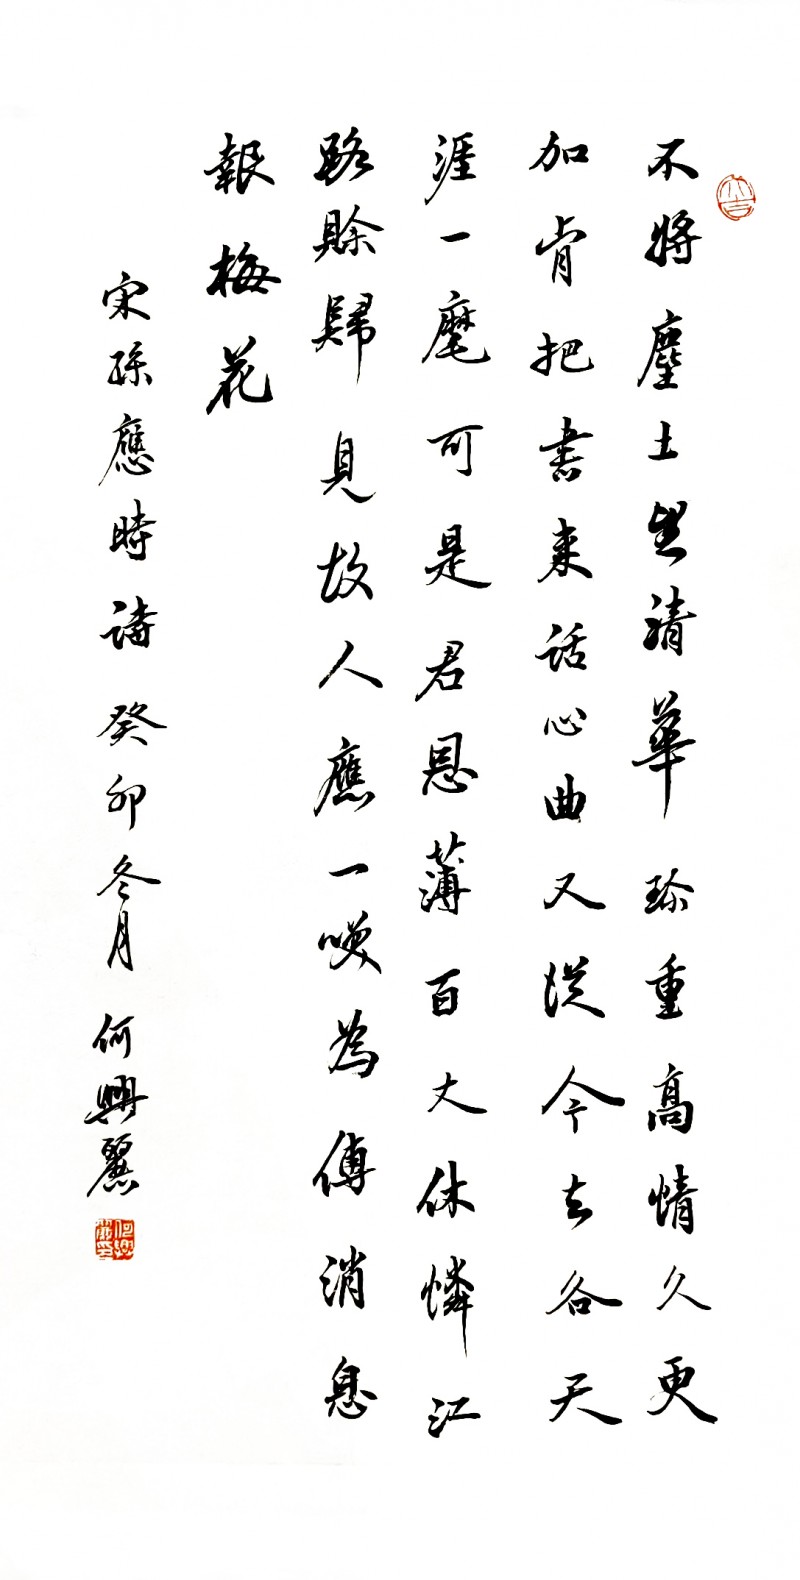 不將塵土望清華珍重高情久更
加肯把書来話心曲又從今去各天
涯一麾可是君恩薄百丈休憐江
路賒歸見故人應一咲為傳消息
報梅花
宋孫應時詩癸卯冬月何興麗